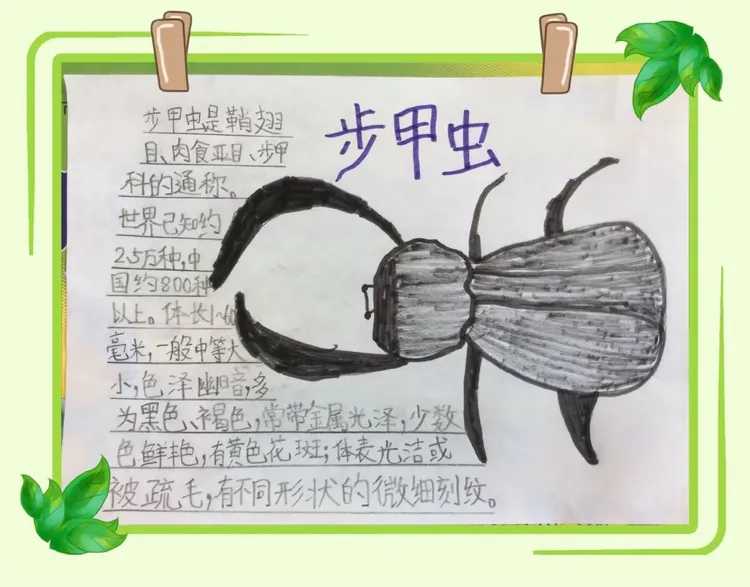 步甲虫
步甲虫是鞘翅
目、肉食亚目、步甲
科的通称。
世界已知约
2.5万种,中
国约800种
以上。体长1~60
毫米,一般中等大
小,色泽幽暗,多
为黑色、褐色,常带金属光泽,少数
色鲜艳,有黄色花斑;体表光洁或
被疏毛,有不同形状的微细刻纹。